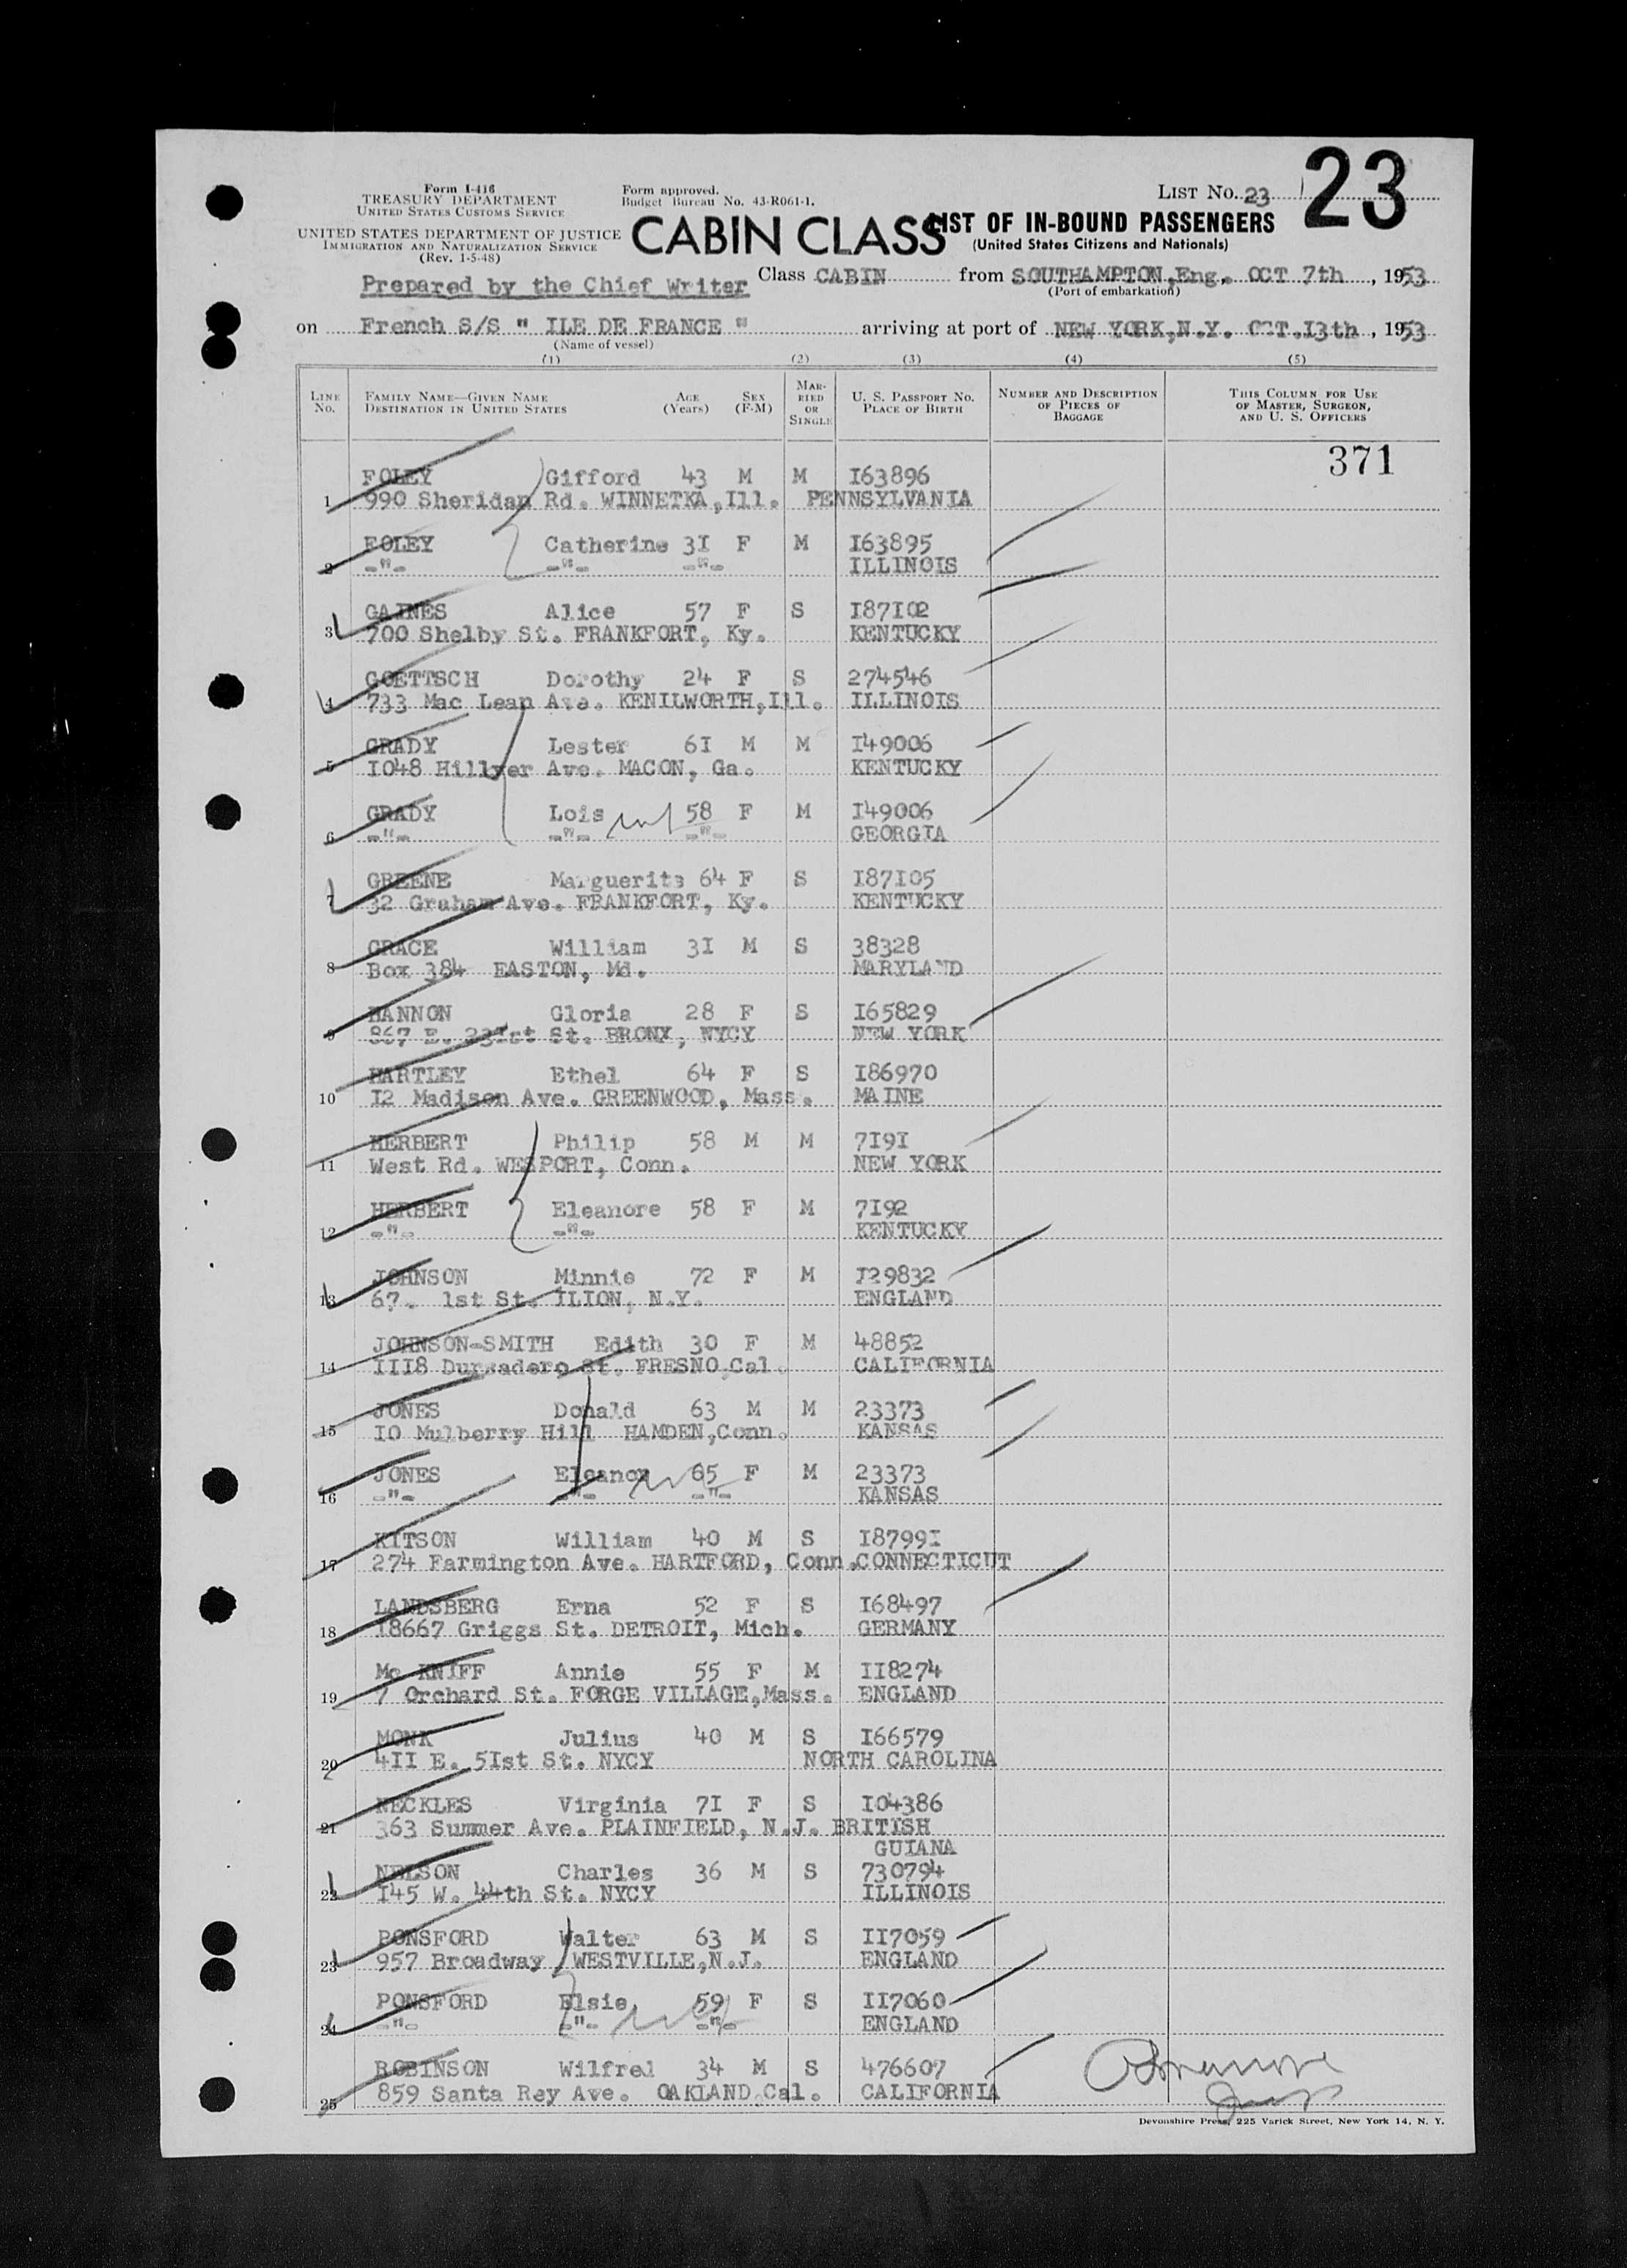 Form I-416
TREASURY DEPARTMENT
UNITED STATES CUSTOMS SERVICE
UNITED STATES DEPARTMENT OF JUSTICE
IMMIGRATION AND NATURALIZATION SERVICE
(Rev. 1-5-48)
Form approved.
Budget Bureau No. 43-R061-1.
LIST NO. 23
23
CABIN CLASS
LIST OF IN-BOUND PASSENGERS
(United States Citizens and Nationals)
Prepared by the Chief Writer
Class CABIN from SOUTHAMPTON,Eng. OCT 7th, 1953
(Port of embarkation)
on French S/S " ILE DE FRANCE " arriving at port of NEW YORK,N.Y. OCT.I3th, 1953
(Name of vessel)
(1) (2) (3) (4) (5)
LINE NO.
FAMILY NAME—GIVEN NAME
DESTINATION IN UNITED STATES
AGE (Years)
SEX (F-M)
MARRIED OR SINGLE
U. S. PASSPORT NO.
PLACE OF BIRTH
NUMBER AND DESCRIPTION OF PIECES OF BAGGAGE
THIS COLUMN FOR USE OF MASTER, SURGEON, AND U. S. OFFICERS
371
FOLEY Gifford 43 M M I63896
1 990 Sheridan Rd. WINNETKA,Ill. PENNSYLVANIA
FOLEY Catherine 3I F M I63895
2 -"- -"- -"- ILLINOIS
GAINES Alice 57 F S I87I02
3 700 Shelby St. FRANKFORT, Ky. KENTUCKY
GOETTSCH Dorothy 24 F S 274546
4 733 Mac Lean Ave. KENILWORTH,Ill. ILLINOIS
GRADY Lester 6I M M I49006
5 I048 Hillyer Ave. MACON, Ga. KENTUCKY
GRADY Lois 58 F M I49006
6 -"- -"- -"- GEORGIA
GREENE Marguerite 64 F S I87I05
7 32 Graham Ave. FRANKFORT, Ky. KENTUCKY
GRACE William 3I M S 38328
8 Box 384 EASTON, Md. MARYLAND
HANNON Gloria 28 F S I65829
9 867 E. 23Ist St. BRONX, NYCY NEW YORK
HARTLEY Ethel 64 F S I86970
10 I2 Madison Ave. GREENWOOD, Mass. MAINE
HERBERT Philip 58 M M 7I9I
11 West Rd. WESPORT, Conn. NEW YORK
HERBERT Eleanore 58 F M 7I92
12 -"- -"- KENTUCKY
JOHNSON Minnie 72 F M I29832
13 67. 1st St. ILION, N.Y. ENGLAND
JOHNSON-SMITH Edith 30 F M 48852
14 III8 Dursadero St. FRESNO,Cal. CALIFORNIA
JONES Donald 63 M M 23373
15 I0 Mulberry Hill HAMDEN,Conn. KANSAS
JONES Eleanor 65 F M 23373
16 -"- -"- -"- KANSAS
KITSON William 40 M S I8799I
17 274 Farmington Ave. HARTFORD, Conn.CONNECTICUT
LANDSBERG Erna 52 F S I68497
18 I8667 Griggs St. DETROIT, Mich. GERMANY
Mc KNIFF Annie 55 F M II8274
19 7 Orchard St. FORGE VILLAGE,Mass. ENGLAND
MONK Julius 40 M S I66579
20 4II E. 5Ist St. NYCY NORTH CAROLINA
NECKLES Virginia 7I F S I04386
21 363 Summer Ave. PLAINFIELD, N.J. BRITISH
GUIANA
NELSON Charles 36 M S 730794
22 I45 W. 44th St. NYCY ILLINOIS
PONSFORD Walter 63 M S II7059
23 957 Broadway WESTVILLE,N.J. ENGLAND
PONSFORD Elsie 59 F S II7060
24 -"- -"- -"- ENGLAND
ROBINSON Wilfrel 34 M S 476607
25 859 Santa Rey Ave. OAKLAND,Cal. CALIFORNIA
Devonshire Press, 225 Varick Street, New York 14, N. Y.